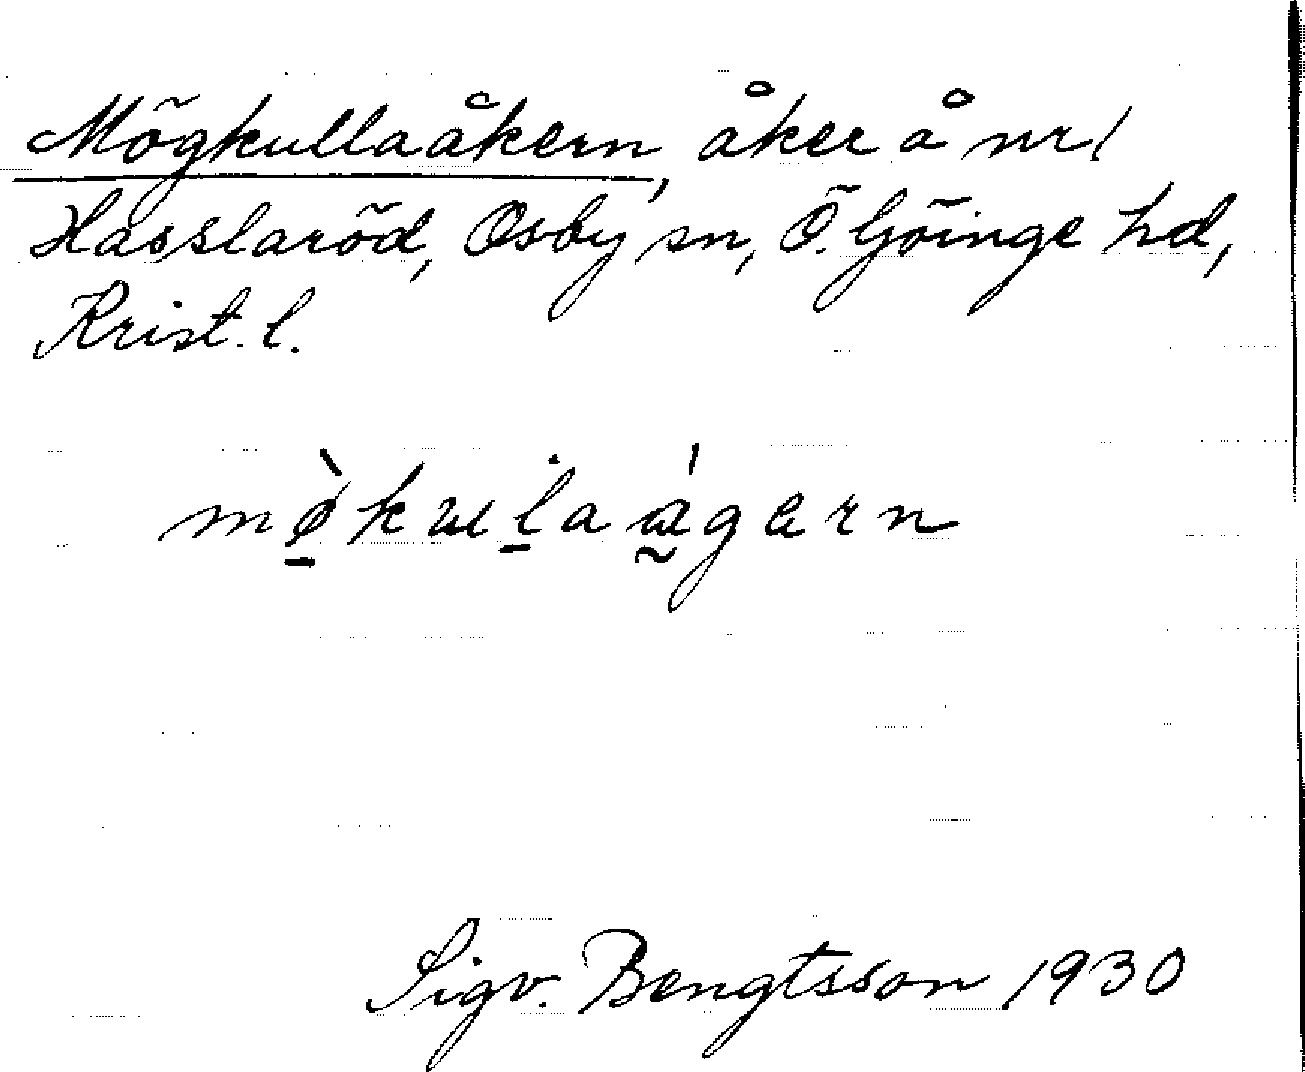 Mögkullaåkern, åker å nr 1
Hasslaröd, Osby sn, Ö. Göinge hd,
Krist. l.
mø̠̀kuḻaá̰gern
Sigv. Bengtsson 1930